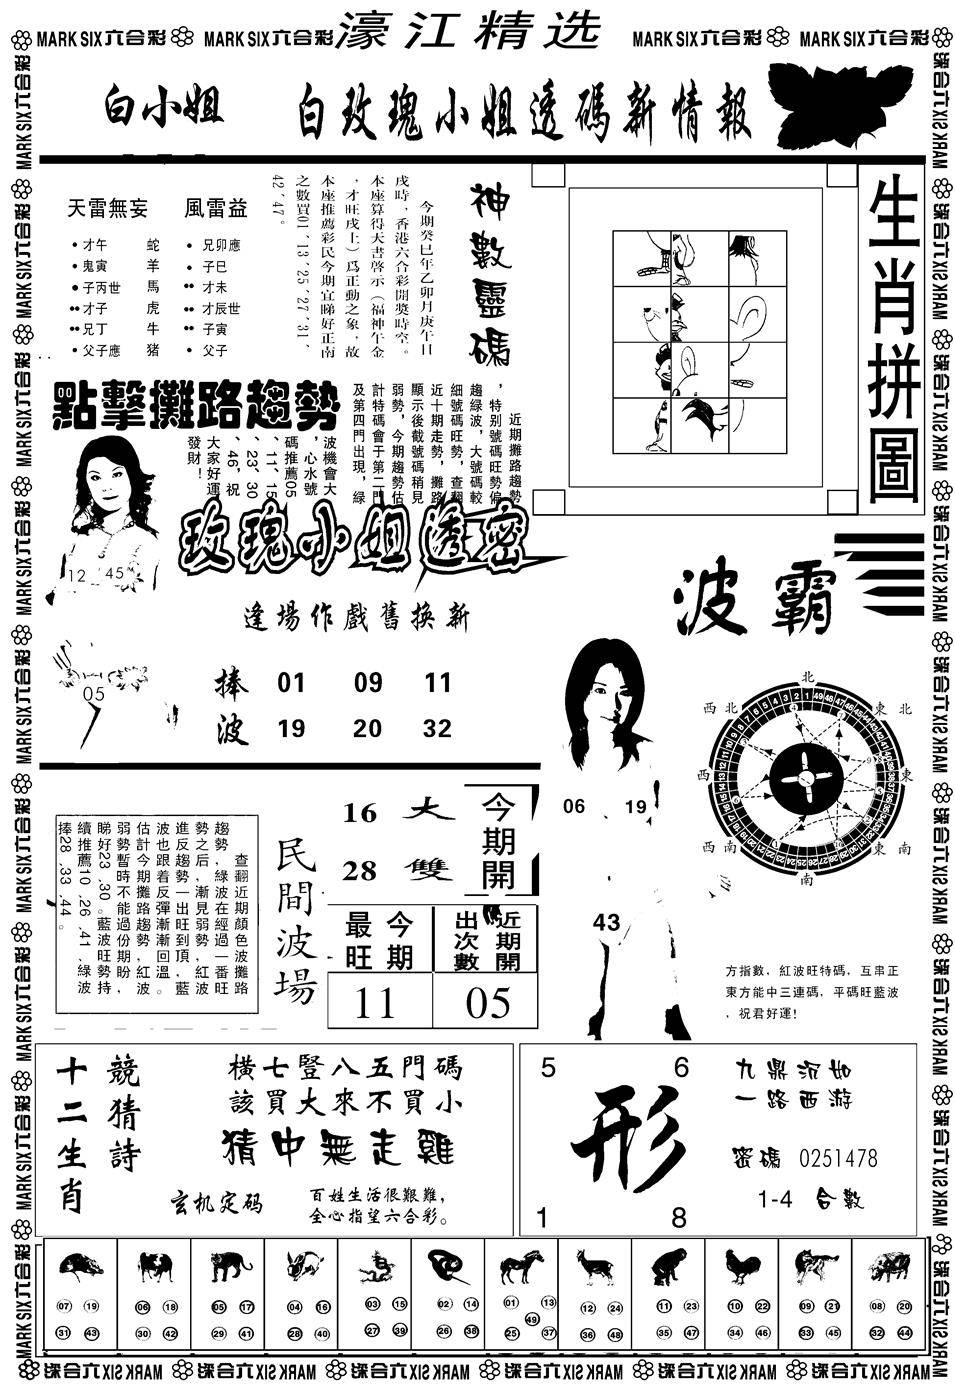 MARK SIX六合彩
MARK SIX六合彩
濠江精选
MARK SIX六合彩
MARK SIX六合彩
白小姐
白玫瑰小姐透碼新情報
天雷無妄
風雷益
•才午 蛇
•鬼寅 羊
•子丙世 馬
••才子 虎
••兄丁 牛
•父子應 猪
•兄卯應
•子巳
••才未
••才辰世
••子寅
•父子
神數靈碼
今期癸巳年乙卯月庚午日
戌時，香港六合彩開獎時空。
本座算得天書啓示（福神午金
，才旺戌上）爲正動之象，故
本座推薦彩民今期宜睇好正南
之數買01，13，25，27，31，
42，47。
生肖拼圖
點擊攤路趨勢
近期攤路趨勢
，特别號碼旺勢偏
趨緑波，大號碼較
細號碼旺勢，查翻
近十期走勢，攤路
顯示後截號碼稍見
弱勢，今期趨勢估
計特碼會于第二門
及第四門出現，緑
波機會大
，心水號
碼推薦05
、11、15
、23、30
、46，祝
大家好運
發財！
12 45
05
玫瑰小姐透密
逢場作戲舊换新
捧 01 09 11
波 19 20 32
波霸
北
東北
東
東南
南
西南
西
西北
06 19
43
方指數，紅波旺特碼，互串正
東方能中三連碼，平碼旺藍波
，祝君好運！
查翻近期顔色波攤路
趨勢，緑波在經過一番旺
勢之后，漸見弱勢，紅波
進反趨勢一出旺到頂，藍
波也跟着反彈漸漸回温。
估計今期攤路趨勢紅波
弱勢暫時不能過份期盼，
睇好23，30。藍波旺勢持
續推薦10，26，41，緑波
捧28，33，44。
民間波場
16 大
28 雙
今期開
今期最旺
近期開出次數
11
05
競猜詩
十二生肖
横七豎八五門碼
該買大來不買小
猜中無走雞
玄机定码
百姓生活很艱難，
全心指望六合彩。
5 6
形
1 8
九鼎沉如
一路西游
密碼 0251478
1-4 合數
07 19 31 43
06 18 30 42
05 17 29 41
04 16 28 40
03 15 27 39
02 14 26 38
01 13 25 37 49
12 24 36 48
11 23 35 47
10 22 34 46
09 21 33 45
08 20 32 44